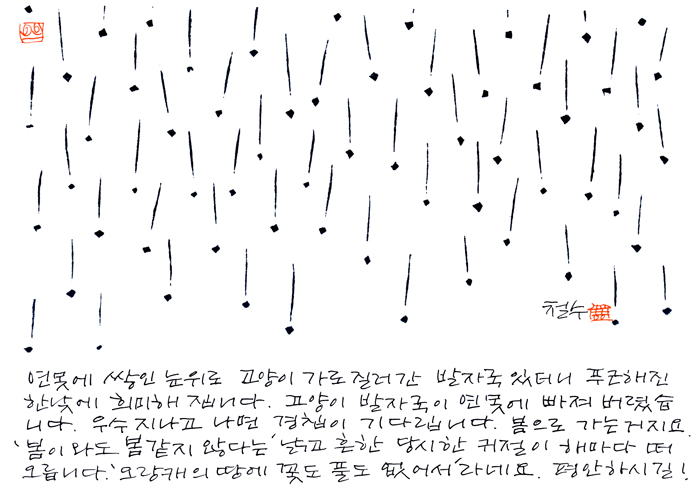 철수
연못에 쌓인 눈위로 고양이 가로질러간 발자국 있더니 푸근해진
한낮에 희미해 집니다. 고양이 발자국이 연못에 빠져 버렸습
니다. 우수 지나고 나면 경칩이 기다립니다. 봄으로 가는거지요.
'봄이 와도 봄같지 않다는' 낡고 흔한 당시한 귀절이 해마다 떠
오릅니다. '오랑캐의 땅에 꽃도 풀도 없어서'라네요. 평안하시길!